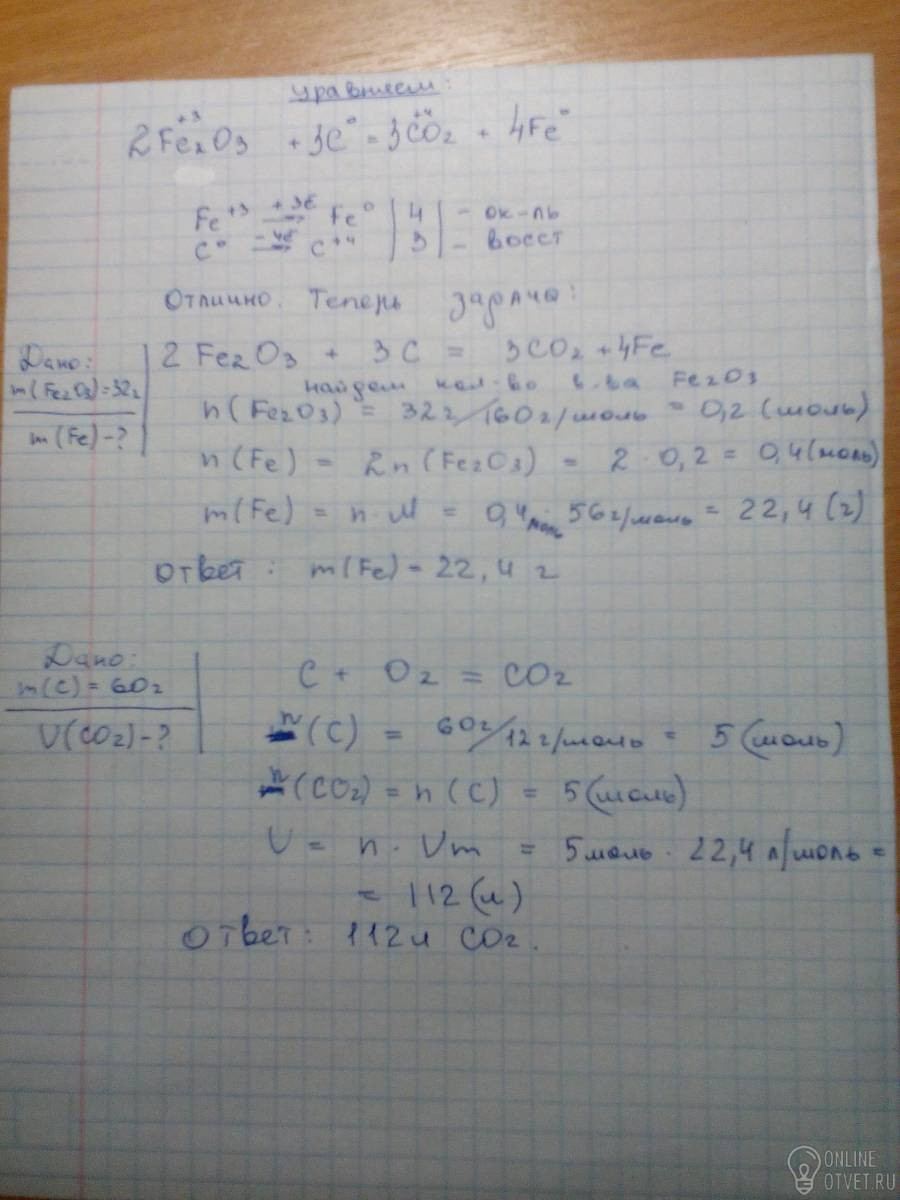 уравняем:
2Fe₂⁺³O₃ + 3C⁰ = 3C⁺⁴O₂ + 4Fe⁰
Fe⁺³ +3е̄→ Fe⁰ | 4 | - ок-ль
C⁰ -4е̄→ C⁺⁴ | 3 | - восст
Отлично. Теперь задача:
Дано:
m(Fe₂O₃)=32г
m(Fe)-?
2Fe₂O₃ + 3C = 3CO₂ + 4Fe
найдем кол-во в-ва Fe₂O₃
n(Fe₂O₃) = 32г/160г/моль = 0,2 (моль)
n(Fe) = 2n(Fe₂O₃) = 2 · 0,2 = 0,4(моль)
m(Fe) = n·M = 0,4моль · 56г/моль = 22,4(г)
Ответ: m(Fe) = 22,4 г
Дано:
m(C) = 60г
V(CO₂)-?
C + O₂ = CO₂
n(C) = 60г/12г/моль = 5(моль)
n(CO₂) = n(C) = 5(моль)
V = n · Vm = 5моль · 22,4л/моль =
= 112(л)
Ответ: 112л CO₂.
ONLINE
OTVET.RU